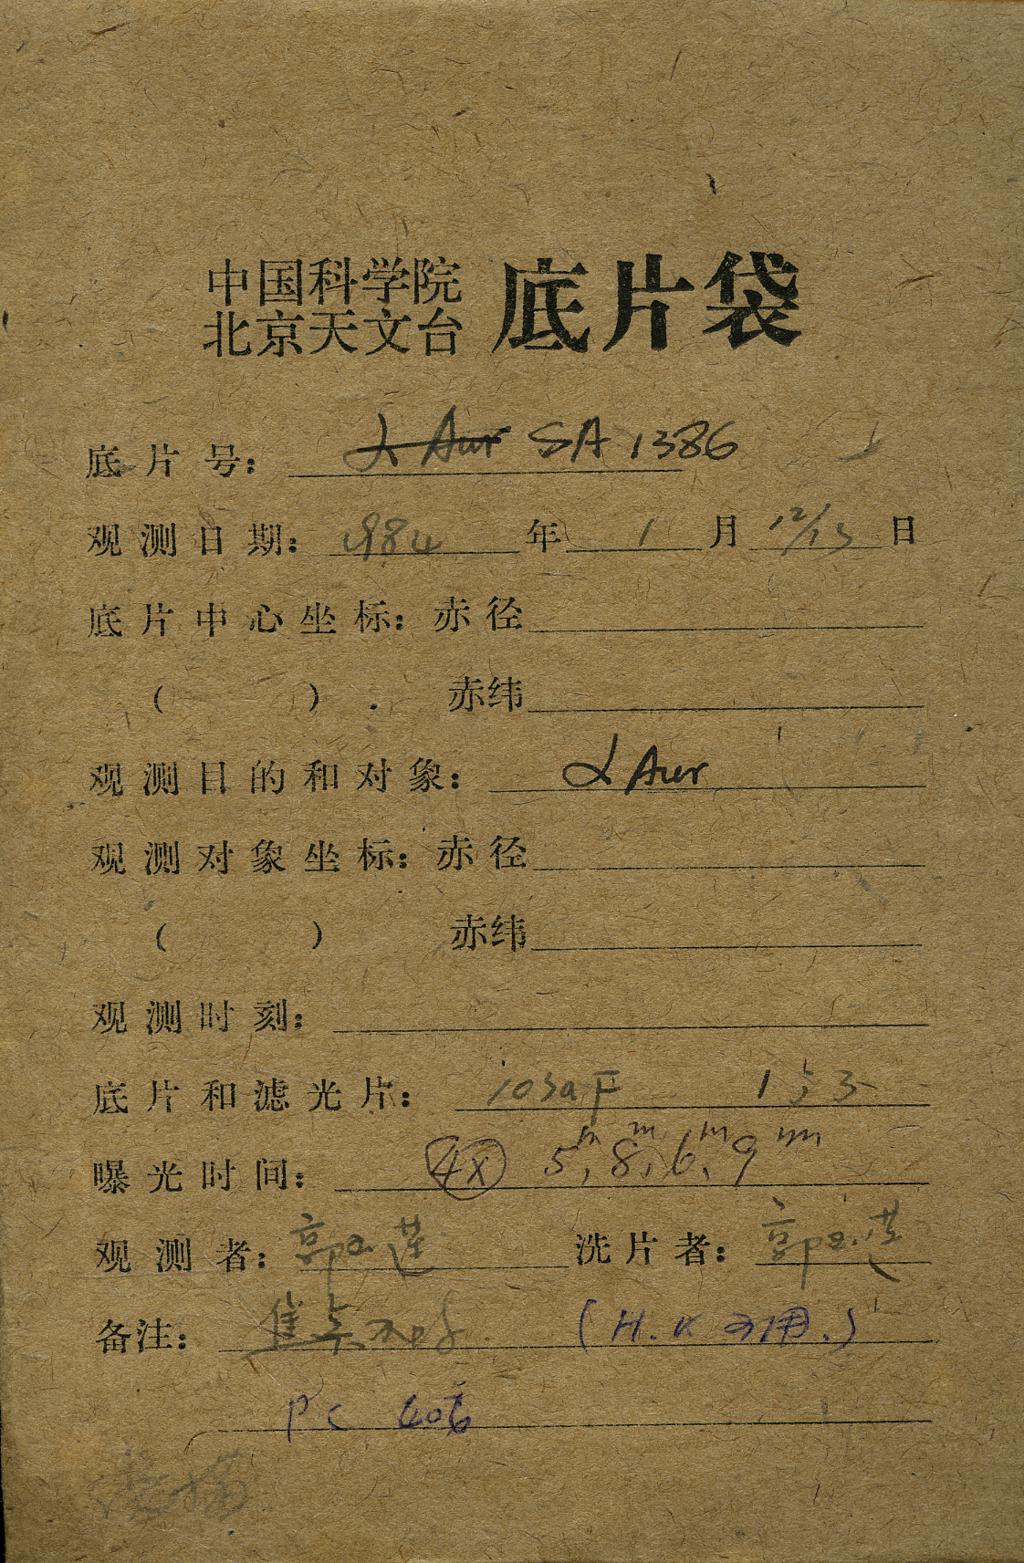 中国科学院
北京天文台 底片袋
底片号: α Aur SA 1386
观测日期: 1984 年 1 月 12/13 日
底片中心坐标: 赤径
( ). 赤纬
观测目的和对象: α Aur
观测对象坐标: 赤径
( ) 赤纬
观测时刻:
底片和滤光片: 103aF
曝光时间: 4X 5m, 8m, 6m, 9m
观测者: 郭玉莲 洗片者: 郭玉莲
备注: 焦点不好 (H.K 可用.)
PC 406